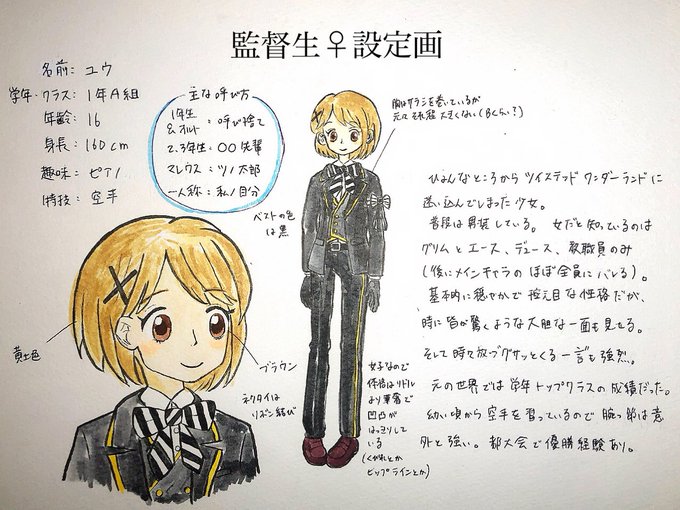 監督生♀設定画
名前: ユウ
学年・クラス: 1年A組
年齢: 16
身長: 160cm
趣味: ピアノ
特技: 空手
主な呼び方
1年生
&オルト : 呼び捨て
2、3年生: 〇〇先輩
マレウス: ツノ太郎
一人称: 私/自分
ベストの色
は黒
胸はサラシを巻いているが
元々それ程大きくない(Bくらい?)
ひょんなところからツイステッドワンダーランドに
迷い込んでしまった少女。
普段は男装している。女だと知っているのは
グリムとエース、デュース、教職員のみ
(後にメインキャラのほぼ全員にバレる)。
基本的に穏やかで控え目な性格だが、
時に皆が驚くような大胆な一面も見せる。
そして時々放つグサッとくる一言も強烈。
元の世界では学年トップクラスの成績だった。
幼い頃から空手を習っているので腕っ節は意
外と強い。都大会で優勝経験あり。
黄土色
ブラウン
ネクタイは
リボン結び
女子なので
体格は
より華奢で
凹凸が
はっきりして
いる
(くびれとか
ヒップラインとか)